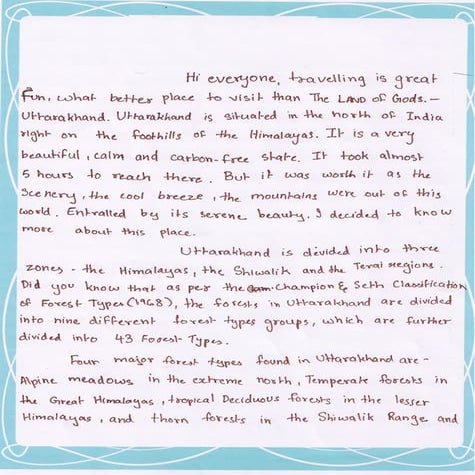 Hi everyone, travelling is great
fun, what better place to visit than The LAND of Gods. -
Uttarakhand. Uttarakhand is situated in the north of India
right on the foothills of the Himalayas. It is a very
beautiful, calm and carbon-free state. It took almost
5 hours to reach there. But it was worth it as the
scenery, the cool breeze, the mountains were out of this
world. Entralled by its serene beauty. I decided to know
more about this place.
Uttarakhand is divided into three
zones - the Himalayas, the Shiwalik and the Terai regions.
Did you know that as per the Champion & Seth Classification
of Forest Types (1968), the forests in Uttarakhand are divided
into nine different forest types groups, which are further
divided into 43 Forest Types.
Four major forest types found in Uttarakhand are -
Alpine meadows in the extreme north, Temperate forests in
the Great Himalayas, tropical Deciduous forests in the lesser
Himalayas, and thorn forests in the Shiwalik Range and